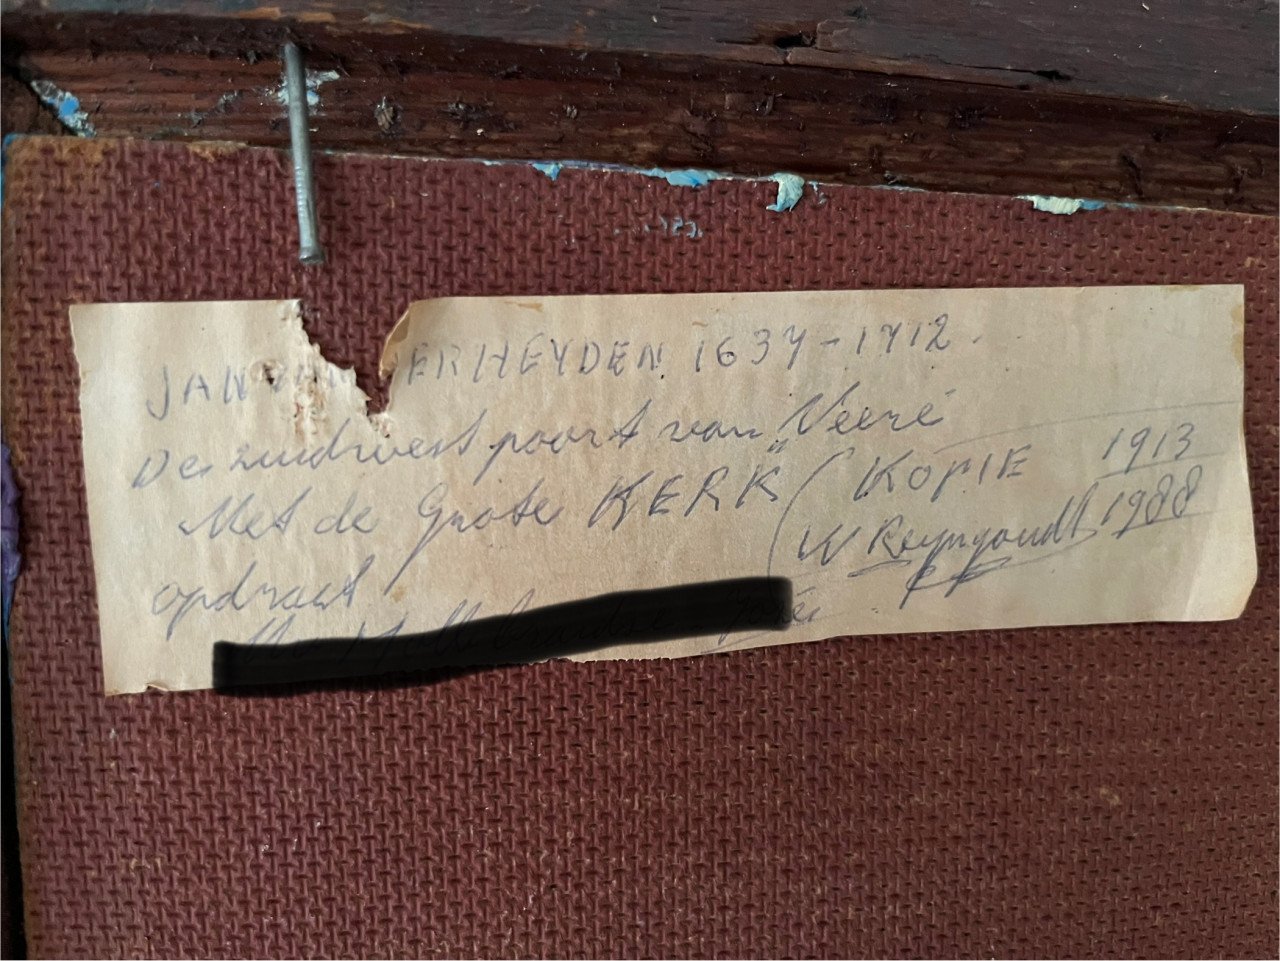 JAN VAN DERHEYDEN 1637-1712.
De zuidwest poort van "Veere
Met de Grote KERK" ( KOPIE 1913
opdracht W Reyngoudt 1988